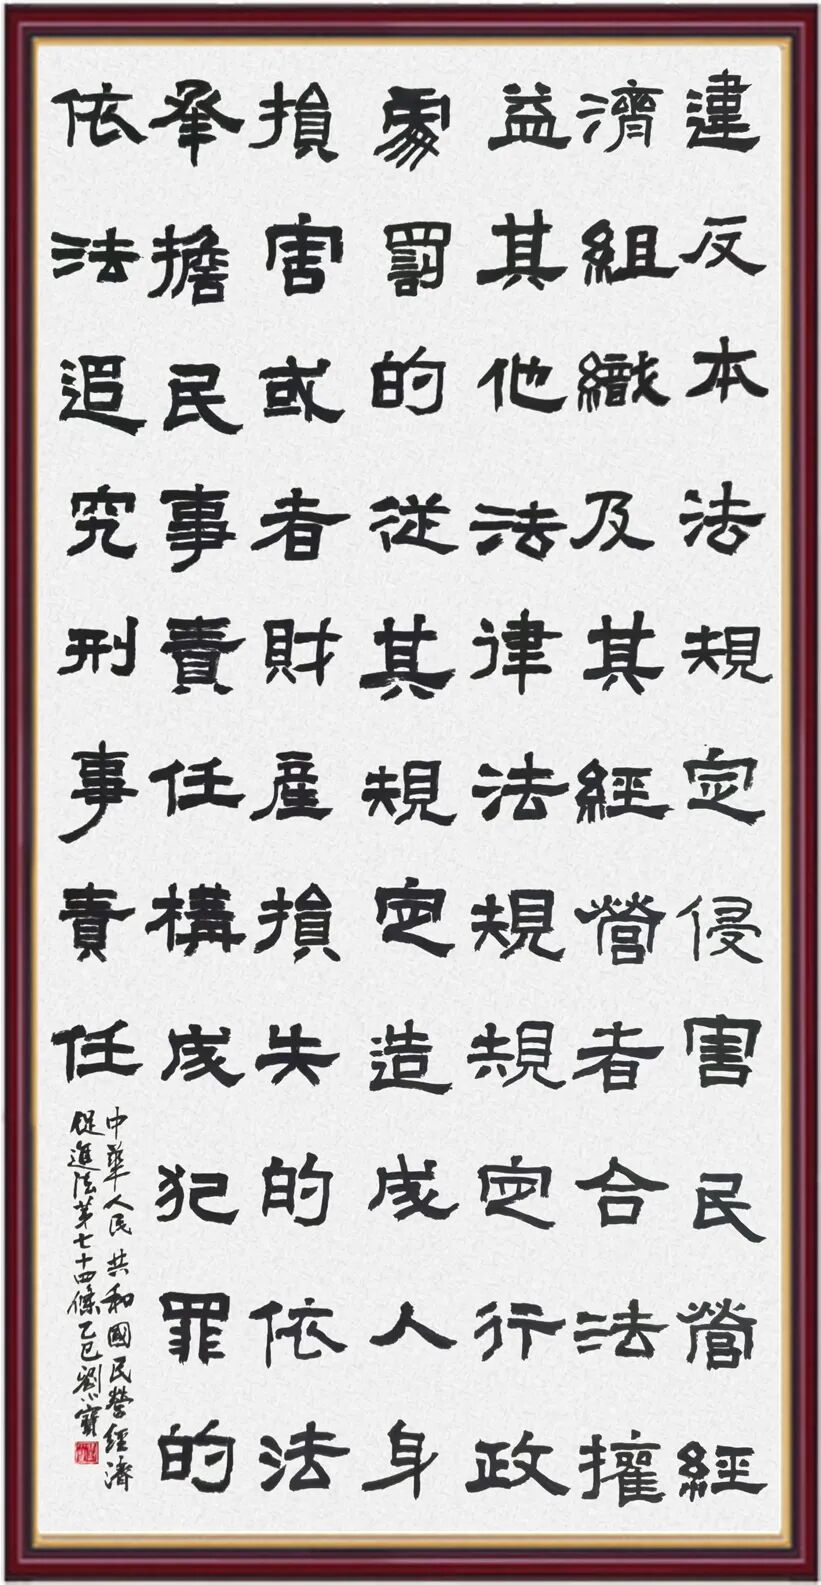 違反本法規定侵害民營經
濟組織及其經營者合法權
益其他法律法規規定行政
處罰的從其規定造成人身
損害或者財產損失的依法
承擔民事責任構成犯罪的
依法追究刑事責任
中華人民共和國民營經濟
促進法第七十四條乙巳劉小寶